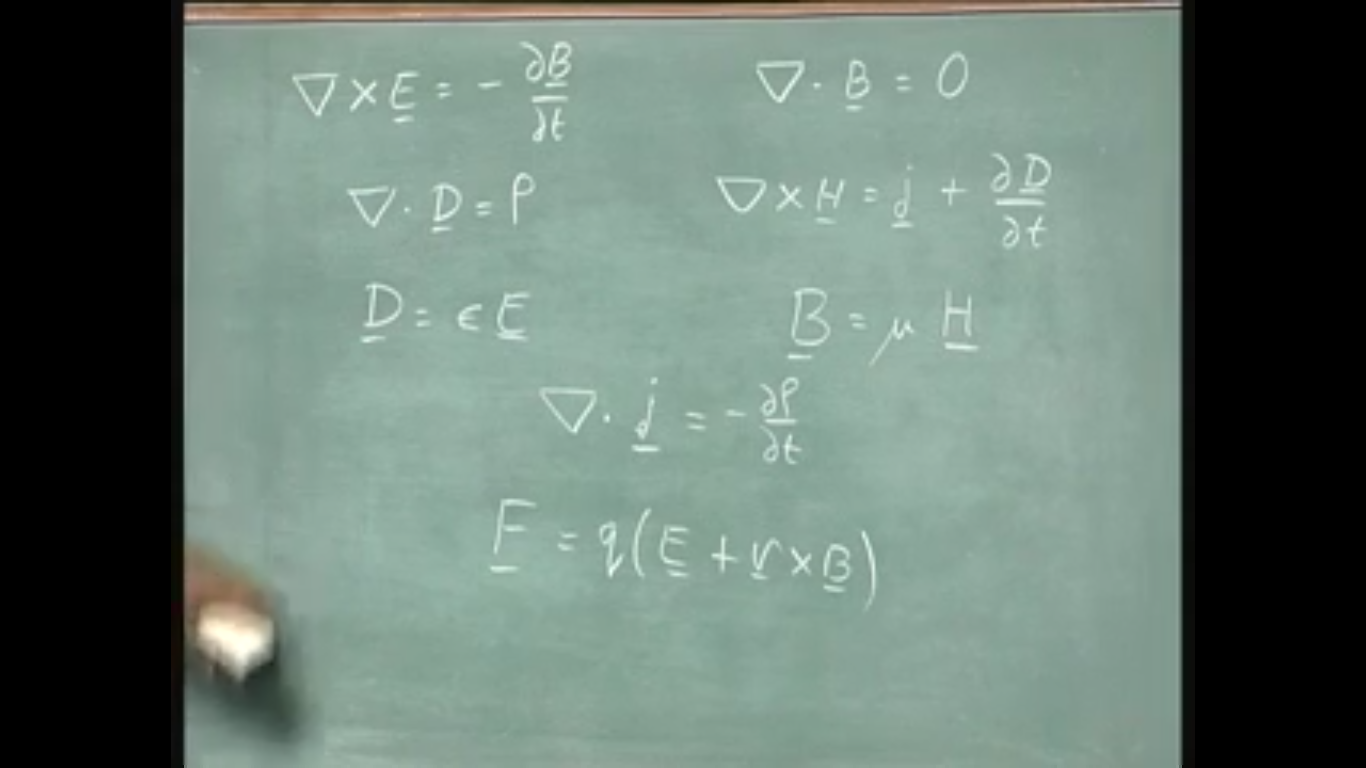 ∇ × E̲ = - ∂B̲/∂t    ∇ · B̲ = 0
∇ · D̲ = ρ    ∇ × H̲ = j̲ + ∂D̲/∂t
D̲ = ϵ E̲    B̲ = μ H̲
∇ · j̲ = - ∂ρ/∂t
F̲ = q(E̲ + v̲ × B̲)